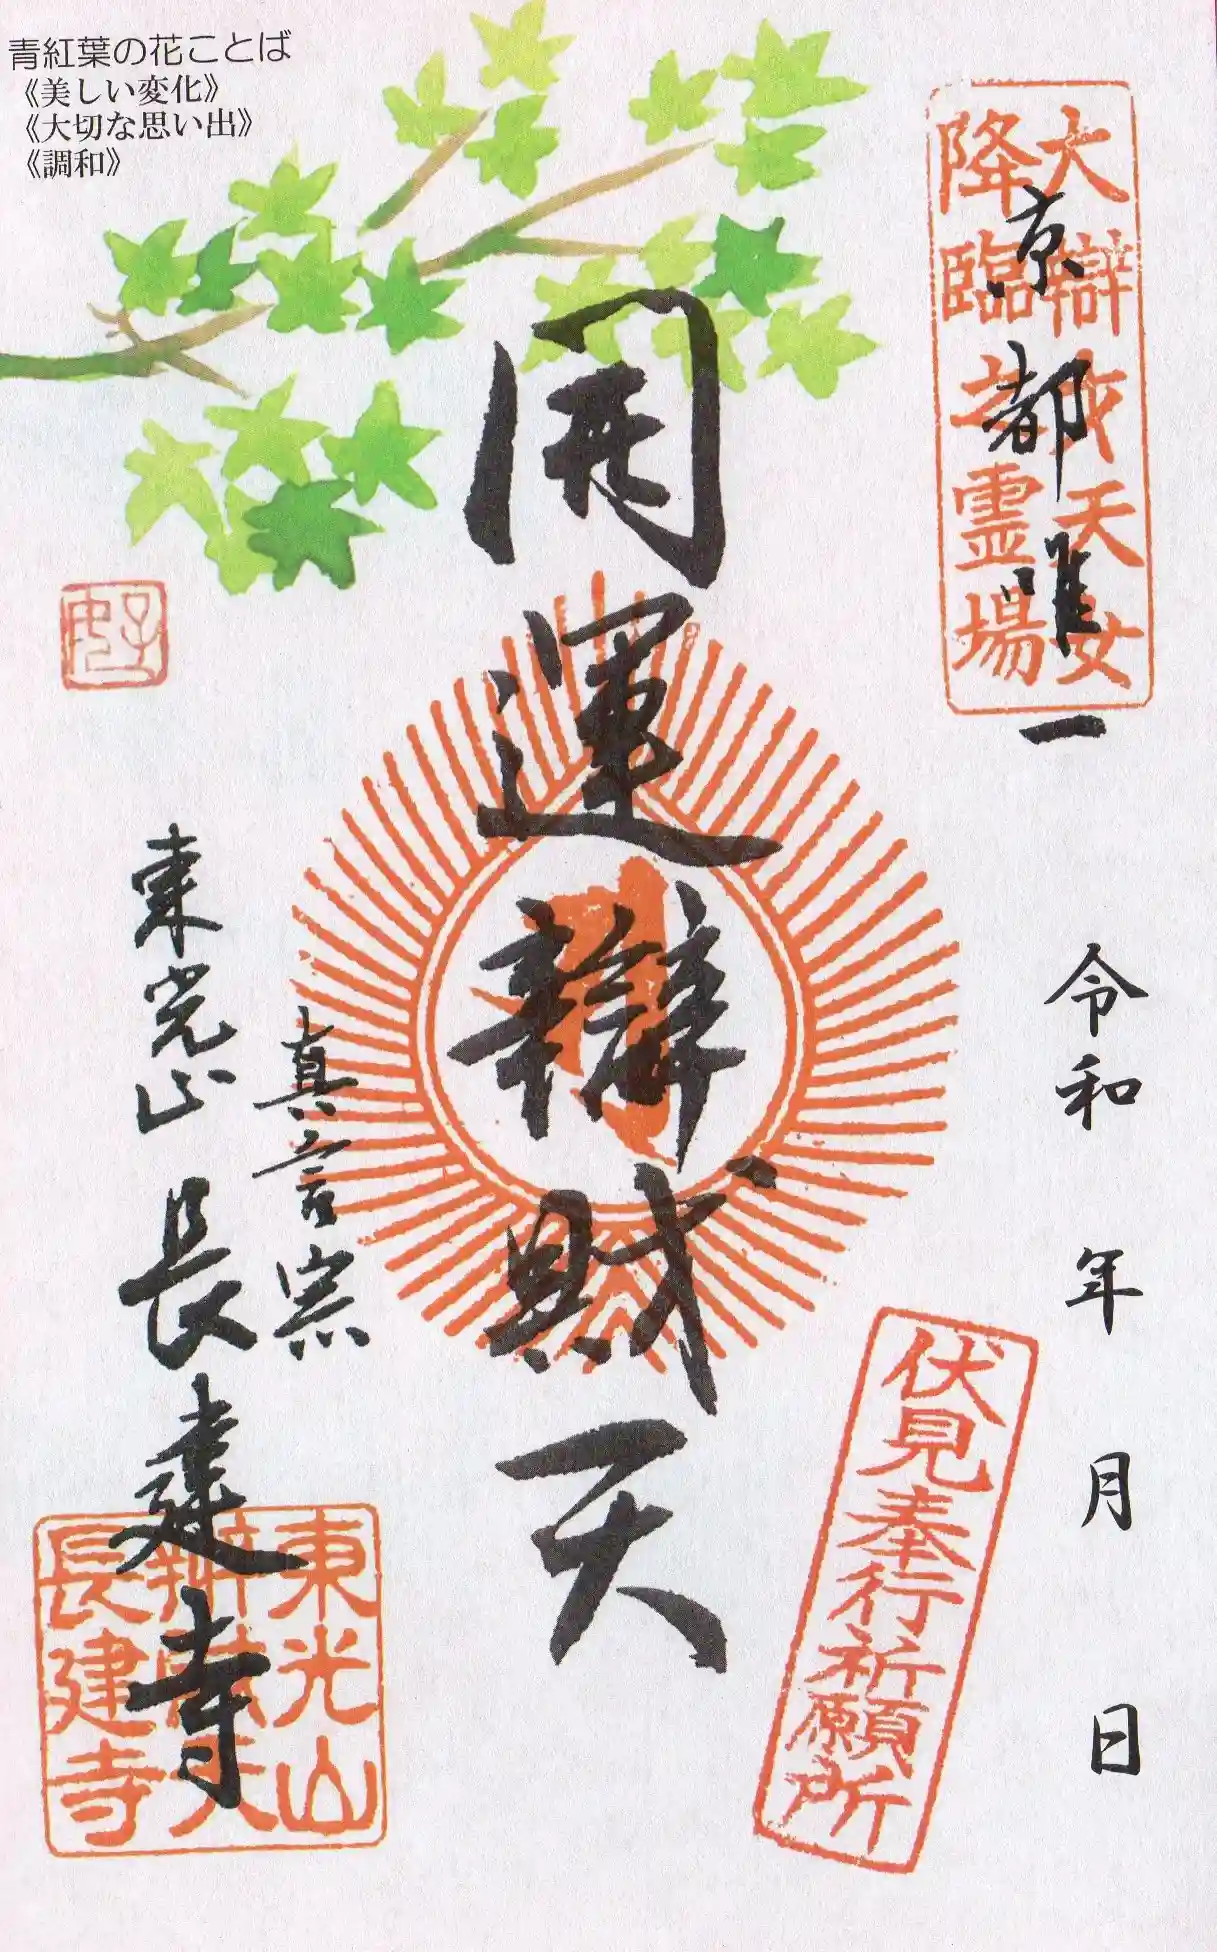 青紅葉の花ことば
《美しい変化》
《大切な思い出》
《調和》
大辯才天女
降臨之霊場
京都唯一
令和 年 月 日
開運辯財天
伏見奉行祈願所
真言宗
東光山 長建寺
東光山
辯財天
長建寺